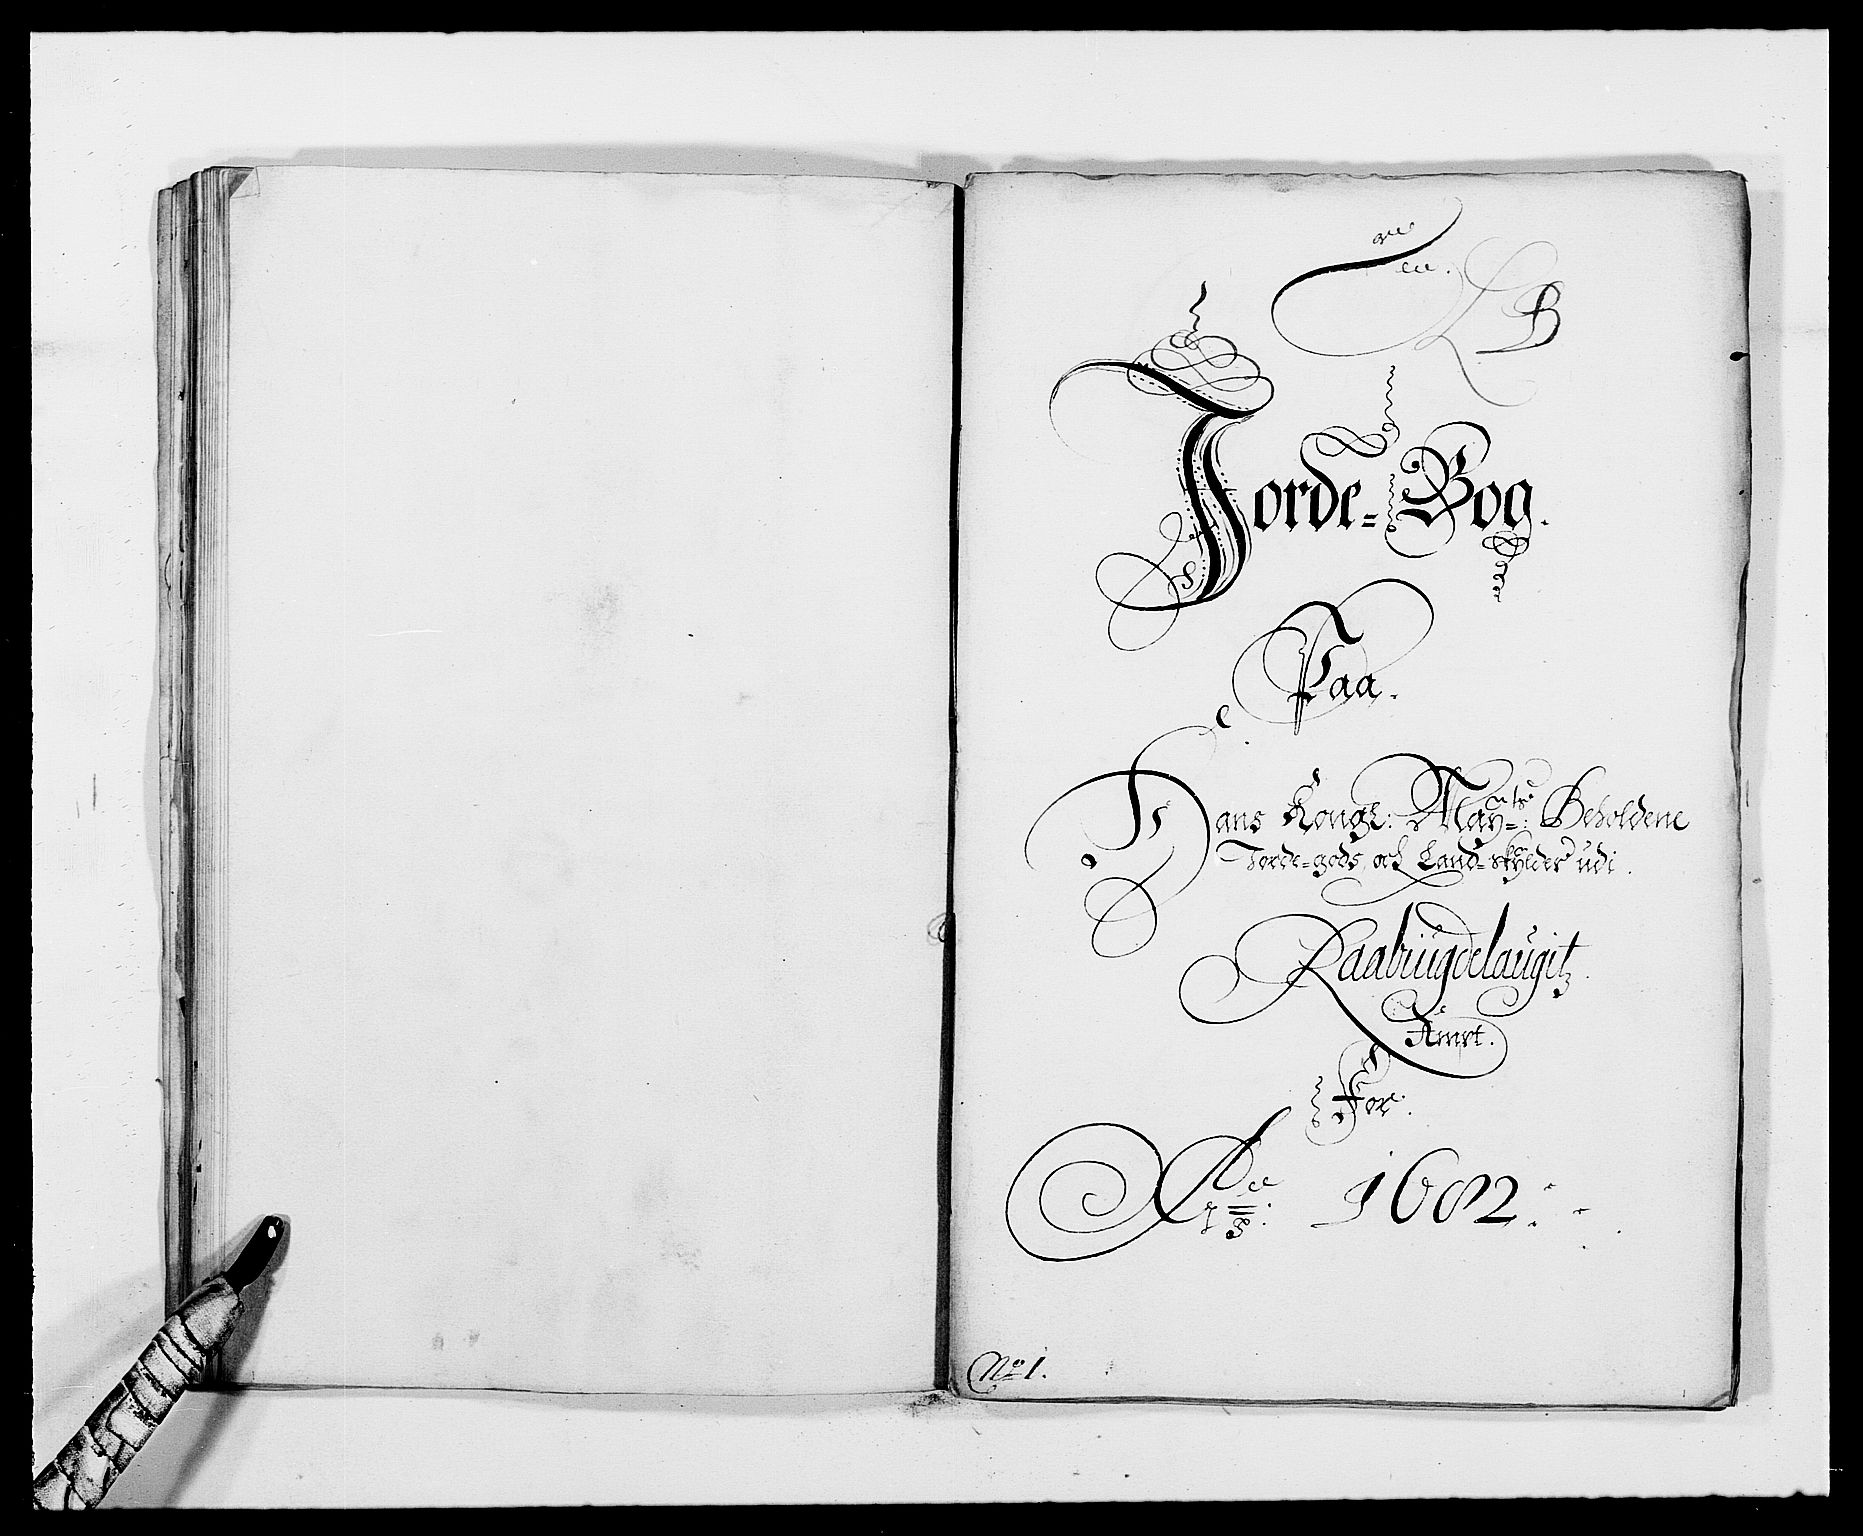 B
Jorde=Bog.
Paa.
Hans Kongl: May:ts Beholdene
Jorde=gods, och Land=skylder udi.
Raabiugdelaugitz
Ambt.
For.
1682.
No 1.